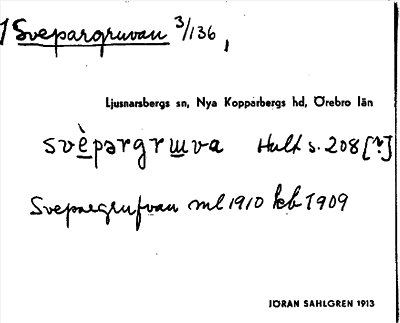 1 Svepargruvan 3/136,
Ljusnarsbergs sn, Nya Kopparbergs hd, Örebro län
svèpargrɯva Hult s. 208 [?]
Svepargrufvan ml 1910 kb 1909
JÖRAN SAHLGREN 1913